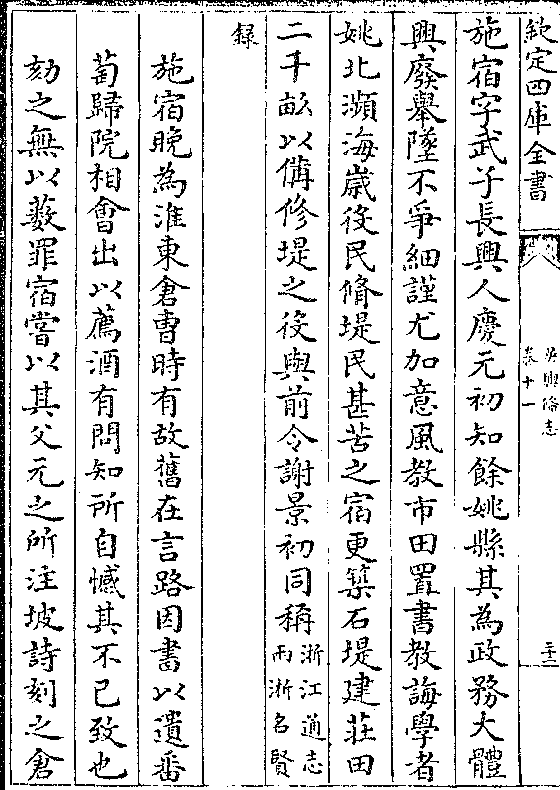 欽定四庫全書
吳興備志
卷十一
三十三
施宿字武子長興人慶元初知餘姚縣其為政務大體
興廢舉墜不爭細謹尤加意風教市田置書教誨學者
姚北瀕海嵗役民脩堤民甚苦之宿更築石堤建莊田
二千畝以備修堤之役與前令謝景初同稱浙江通志
兩浙名賢
録
施宿晚為淮東倉曹時有故舊在言路因書以遺番
萄歸院相會出以薦酒有問知所自憾其不已致也
劾之無以藪罪宿嘗以其父元之所注坡詩刻之倉